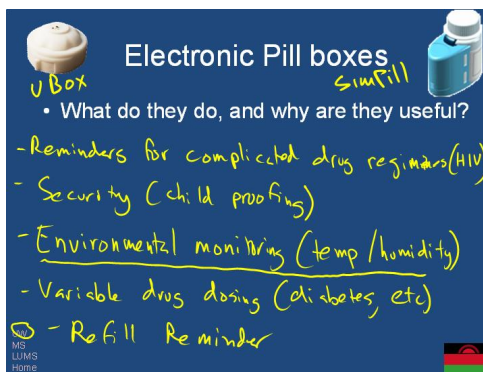 Electronic Pill boxes
uBox
SimPill
• What do they do, and why are they useful?
- Reminders for complicated drug regimens (HIV)
- Security (child proofing)
- Environmental monitoring (temp/humidity)
- Variable drug dosing (diabetes, etc)
- Refill Reminder
MS
LUMS
Home